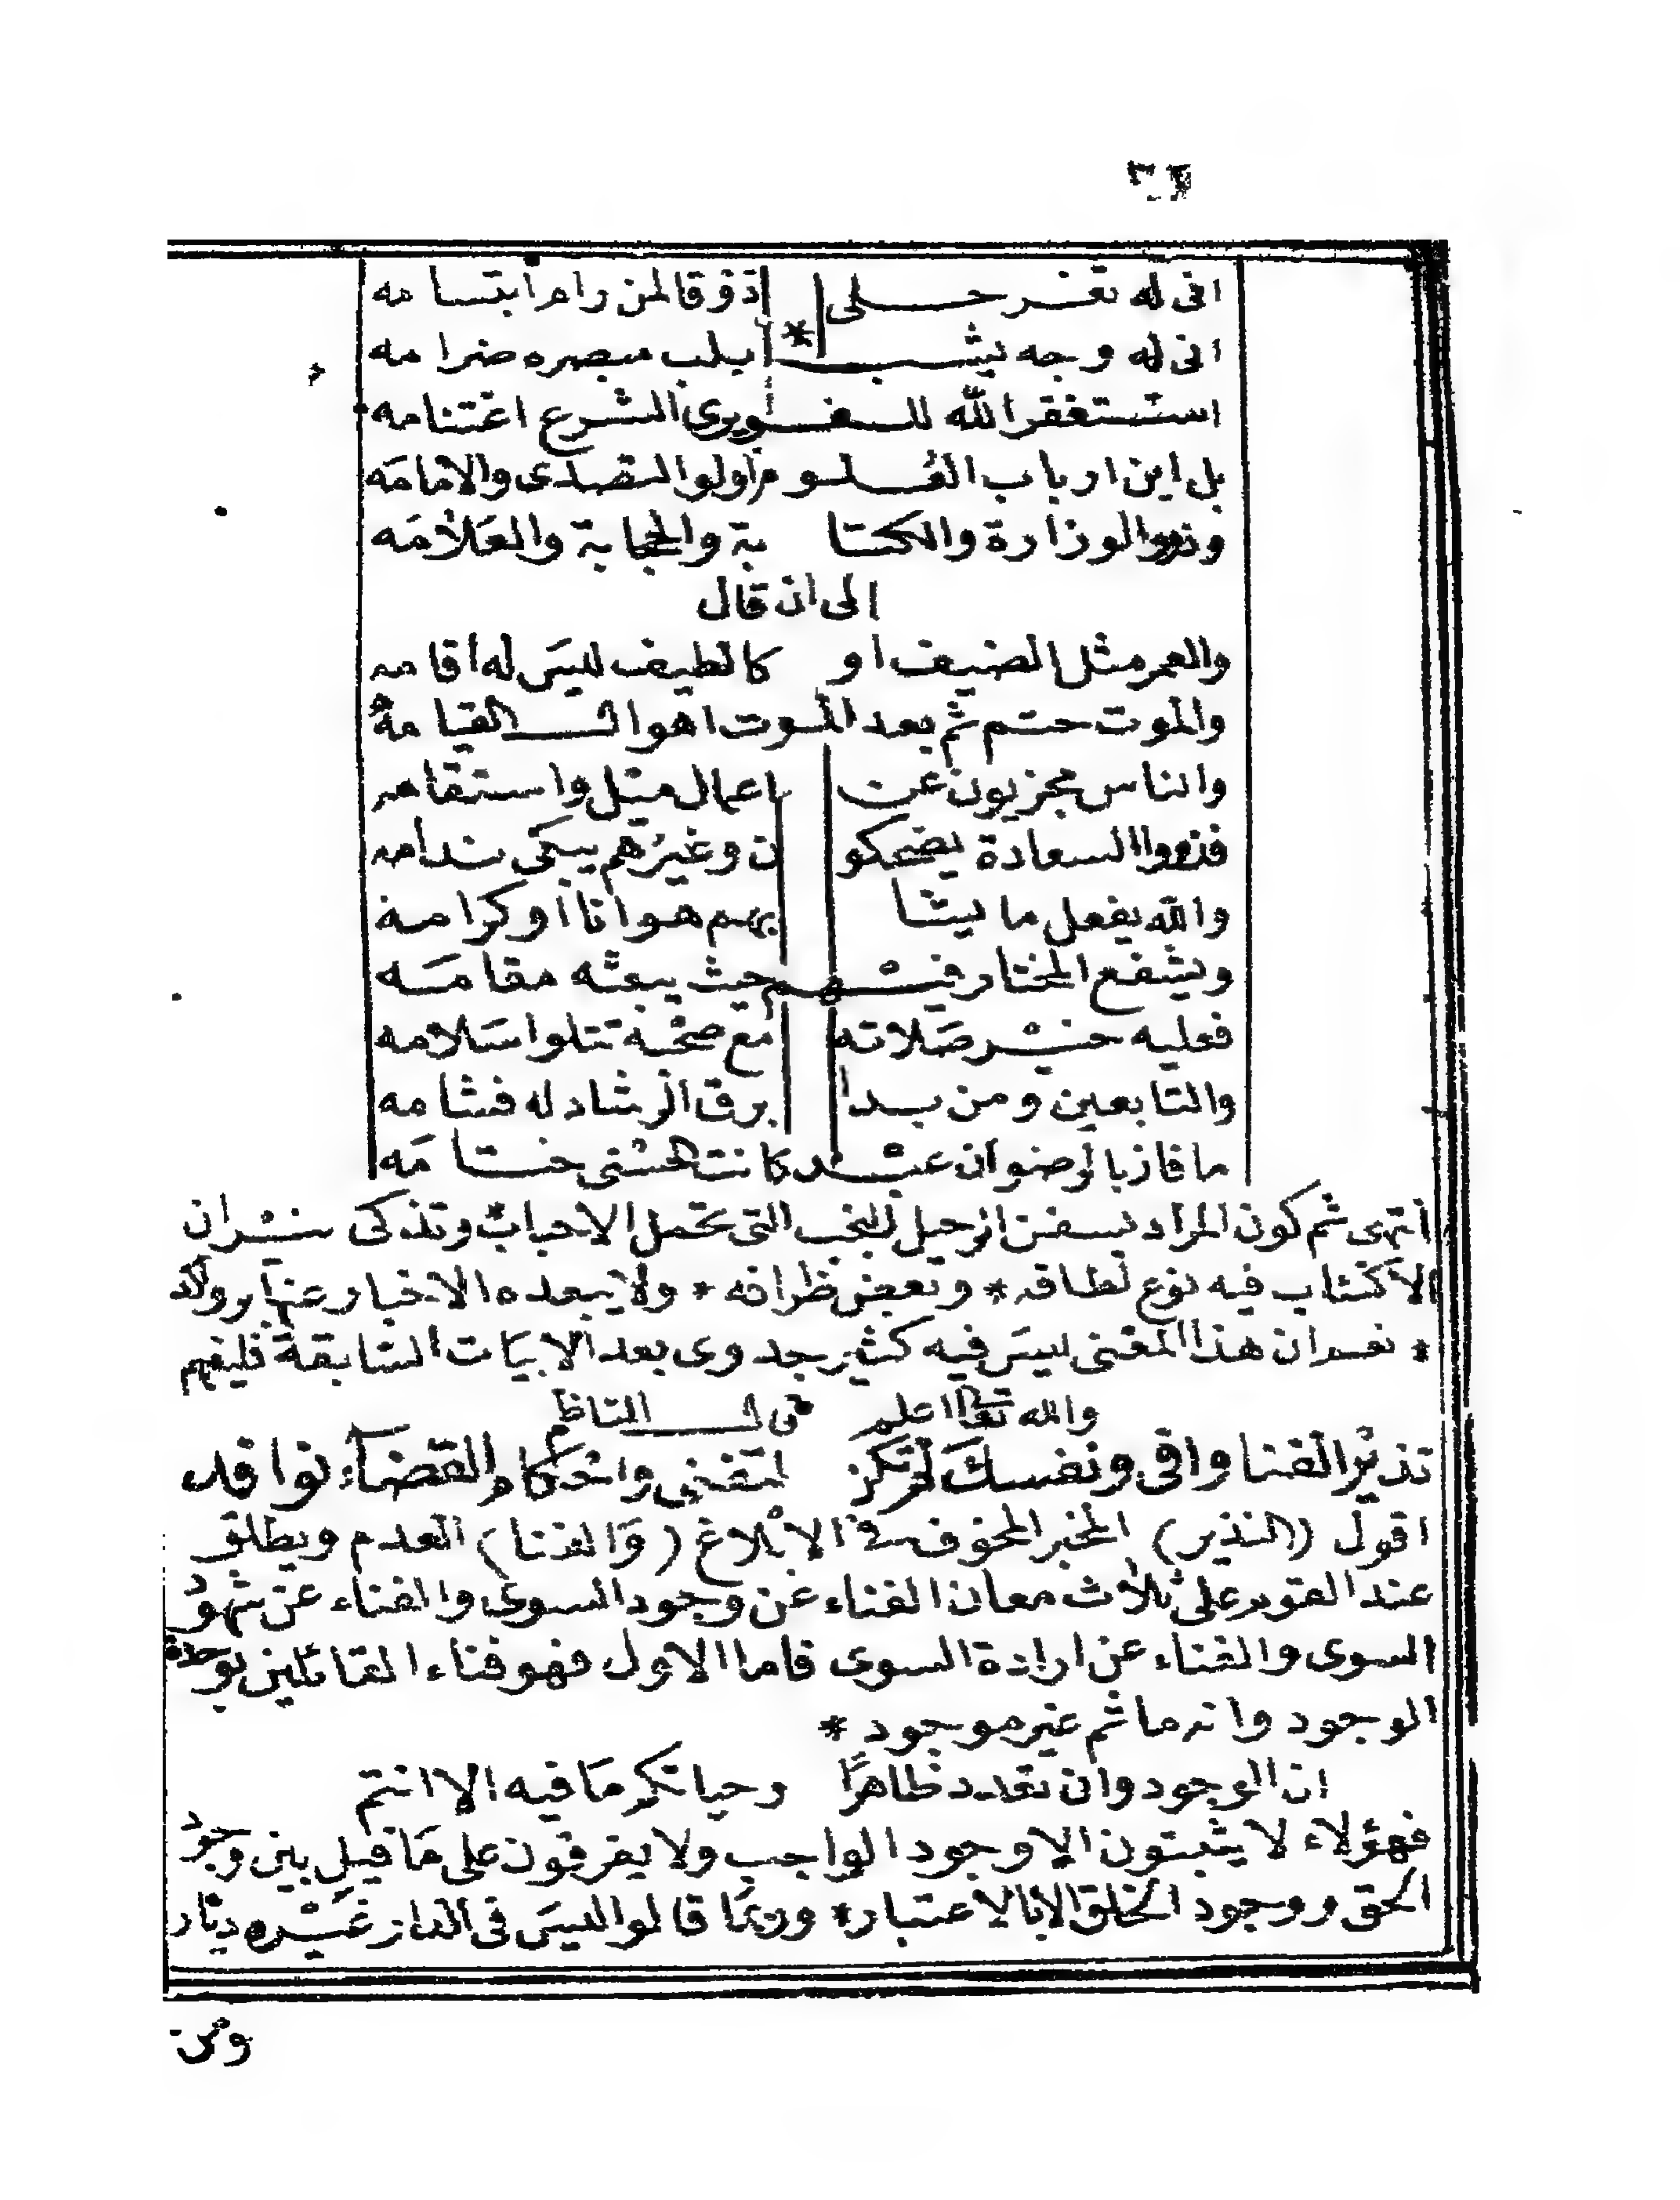 انى له ثغر حلى اذ ذوقا لمن رام ابتسامه
انى له وجه يشب بلب مبصره ضرامه
استغفر الله للغويرى الشرع اغتنامه
بل اين ارباب العلوم اولوا التصدى والامامه
وذووا الوزارة والكتا بة والحجابة والعلامه
الى ان قال
والعمر مثل الضيف او كالطيف ليس له اقامه
والموت حتم ثم بعد الموت اهوال القيامه
والناس مجزيون عن اعمال ميل واستقامه
فذووا السعادة يضحكو ن وغيرهم يبكى ندامه
والله يفعل ما يشا بهم هوانا او كرامة
ويشفع المختار فيهم حيث يبعثه مقامه
فعليه خير صلاته مع صحبة تتلوا سلامه
والتابعين ومن بدا برق الرشاد له فشامه
ما فاز بالرضوان عبد كانت الحسنى ختامه
انتهى ثم كون المراد بسفن الرحيل النجب التى تحمل الاحباب وتذكى نيران
الاكتئاب فيه نوع لطافه * وبعض ظرافه * ولا يبعده الاخبار عنها
* نعم ان هذا المعنى ليس فيه كثير جدوى بعد الابيات السابقة فليفهم
والله تعالى اعلم قال الناظم
نذير الفنا وافى ونفسك لم تكن لتفنى واحكام القضاء نوافد
اقول (النذير) المخبر المخوف فى الابلاغ (والفنا) العدم ويطلق
عند القوم على ثلاث معان الفناء عن وجود السوى والفناء عن شهود
السوى والفناء عن ارادة السوى فاما الاول فهو فناء القائلين بوحدة
الوجود وانه ما ثم غير موجود *
ان الوجود وان تعدد ظاهرا وحياتكم ما فيه الا انتم
فهؤلاء لا يثبتون الا وجود الواجب ولا يفرقون على ما قيل بين وجود
الحق ووجود الخلق الا بالاعتبار * وربما قالوا ليس فى الدار غيره ديار
ومن